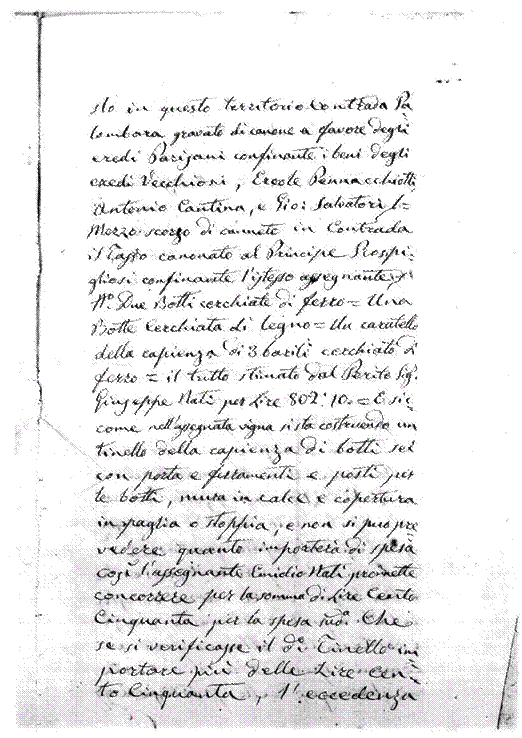 sto in questo territorio Contrada Pa
lombara gravato di canone a favore degli
eredi Parisani confinante i beni degli
eredi Vecchioni, Ercole Pennacchiotti
Antonio Cantina, e Gio: Salvatori /=
Mezzo scorzo di canneto in Contrada
il Tasso canonato al Principe Rospi=
gliosi confinante l'istesso assegnante
N.° Due Botti cerchiate di ferro = Una
Botte Cerchiata di legno = Un caratello
della capienza di 3 barili cerchiato di
ferro = il tutto stimato dal Perito Sig.
Giuseppe Nati per Lire 802:10 = E sic
come nell'assegnata vigna si sta costruendo un
tinello della capienza di botti sei
con porta e ferramenti e posti per
le botti, mura in calce e copertura
in paglia o stoppia, e non si può pre
vedere quanto importerà di spesa
così l'assegnante Emidio Nati promette
concorrere per la somma di Lire Cento
Cinquanta per la spesa sud.a Che
se si verificasse il d.° Tinello im
portare più delle Lire cen=
to Cinquanta, l'eccedenza